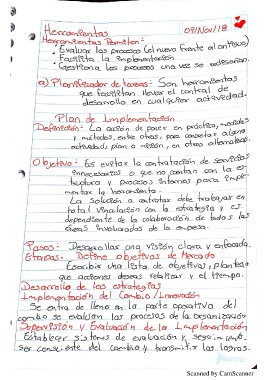 Herramientas 09/Nov/18
Herramientas Permiten:
• Evaluar los procesos (el nuevo frente al antiguo)
• Facilita la implementación
• Gestiona los procesos una vez se rediseñan.
a) Planificador de tareas: Son herramientas
que facilitan llevar el control de
desarrollo en cualquier actividad.
Plan de Implementación
Definición: La acción de poner en práctica, medidas
y métodos, entre otros, para concretar alguna
actividad, plan o misión, en otras alternativas.
Objetivo: Es evitar la contratación de servicios
innecesarios o que no cuentan con la es-
tructura y procesos internos para imple-
mentar la herramienta.
La solución a contratar debe trabajar en
total vinculación con la estrategia y es
dependiente de la colaboración de todas las
áreas involucradas de la empresa.
Pasos: Desarrollar una visión clara y enfocada.
Etapas. Define objetivos de Mercado
Escribir una lista de objetivos, plantear
que acciones deseas realizar y el tiempo.
Desarrollo de las estrategias
Implementación del Cambio/Innovación
Se entra de lleno en la parte operativa del
cambio se evalúan los procesos de la organización
Supervisión y Evaluación de la Implementación
Establecer sistemas de evaluación y seguimiento,
ser consciente del cambio y transmitir los logros.
Norma
Scanned by CamScanner